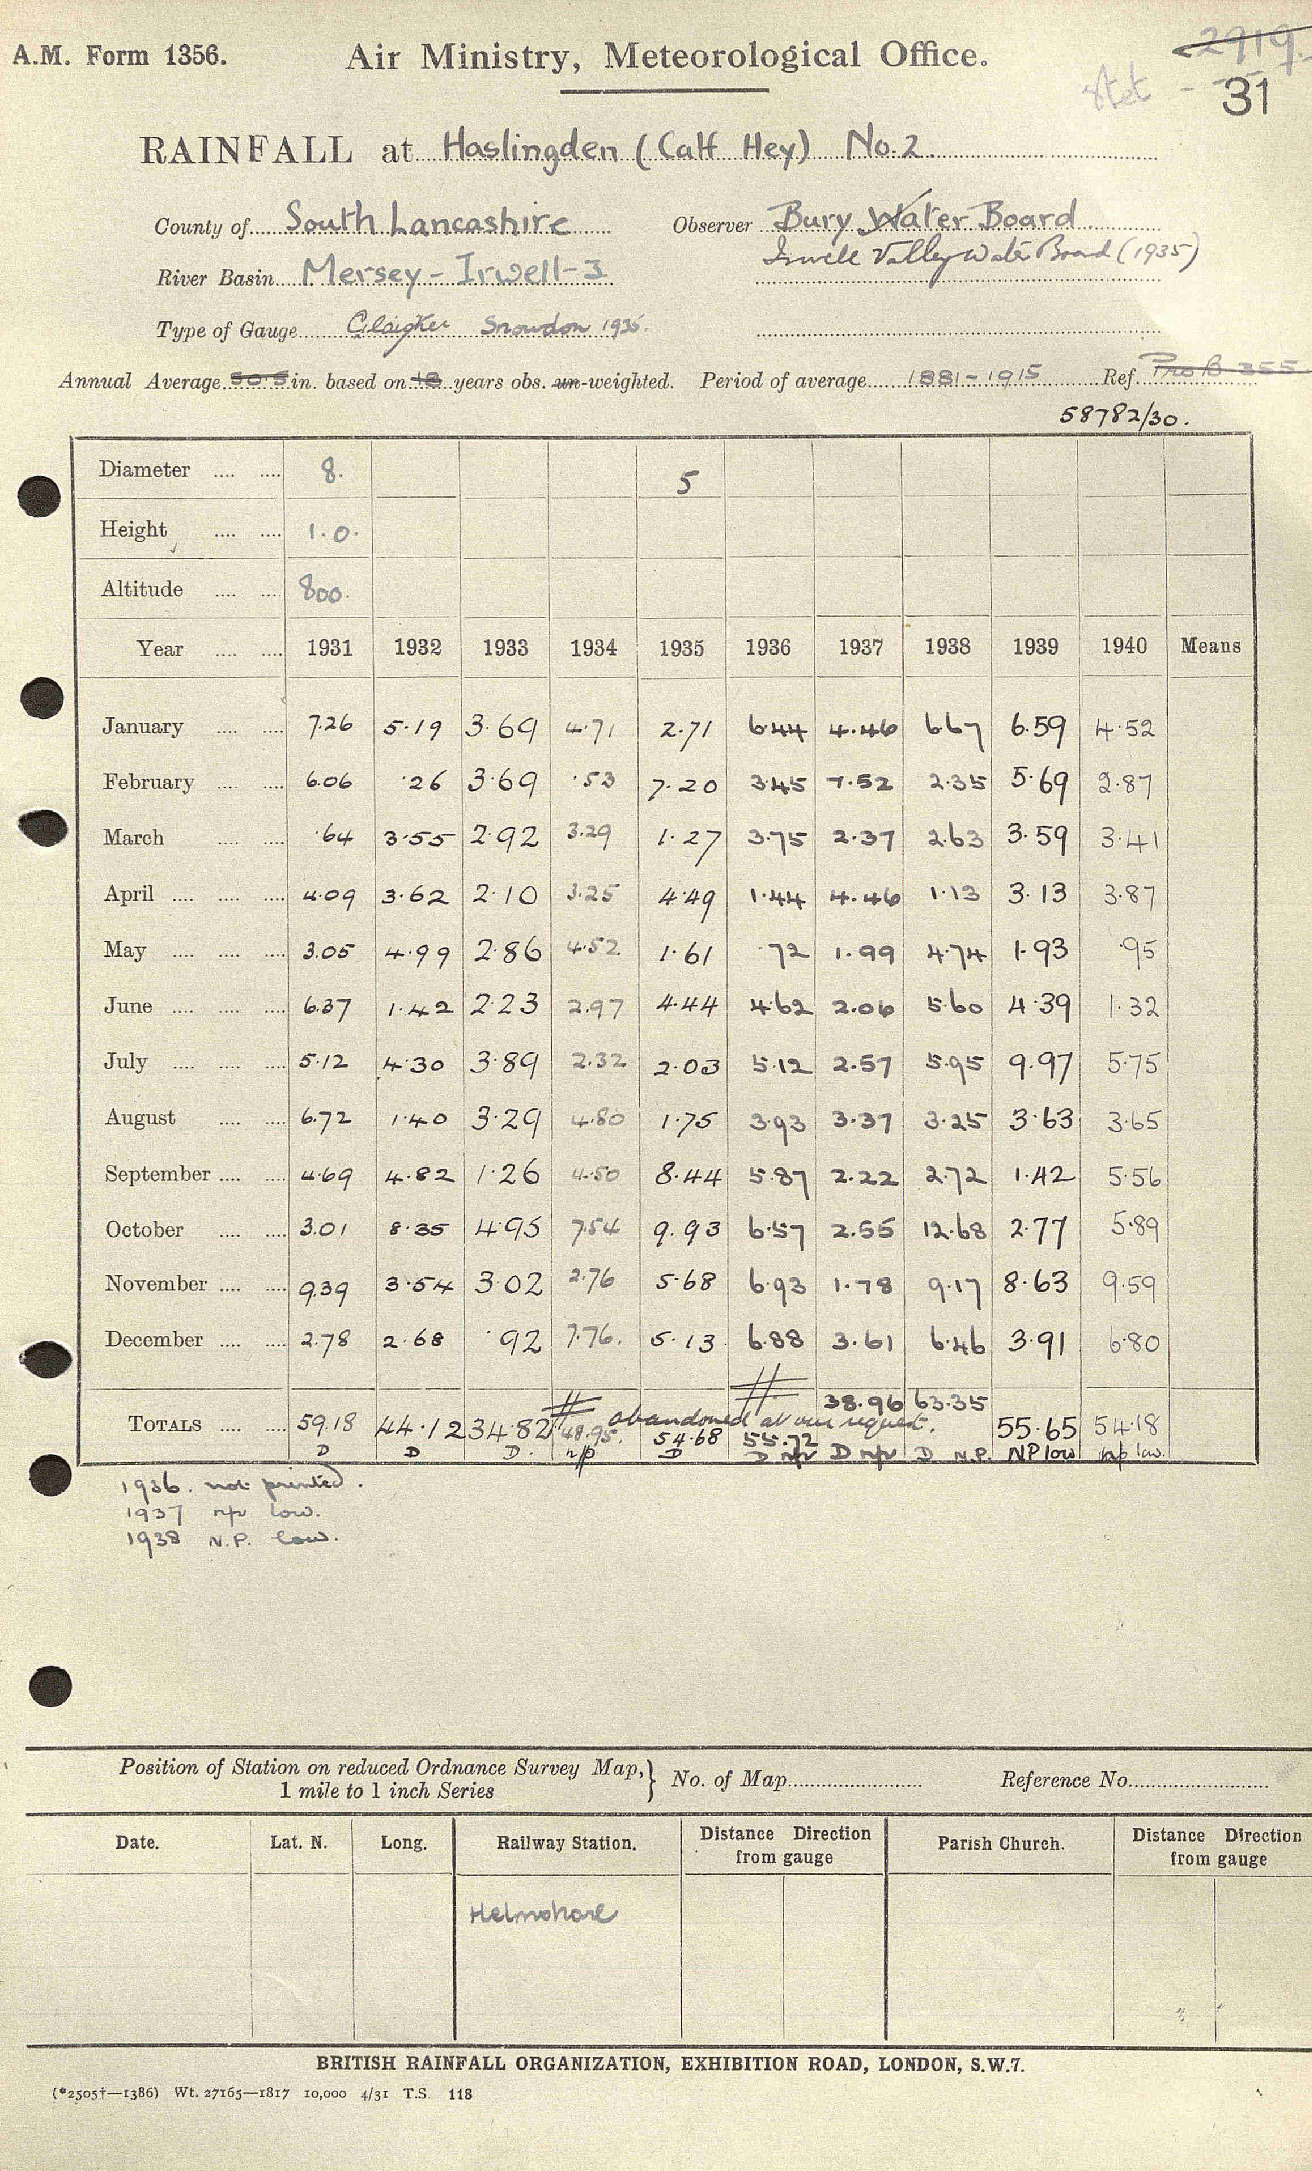 2919.
A.M. Form 1356. Air Ministry, Meteorological Office.
Stet - 31
RAINFALL at Haslingden (Calf Hey) No. 2.
County of South Lancashire Observer Bury Water Board
Irwell Valley Water Board (1935)
River Basin Mersey - Irwell - 3
Type of Gauge Glaisher Snowdon 1935.
Annual Average 50.5 in. based on 18 years obs. un-weighted. Period of average 1881-1915 Ref. Pro B 355
58782/30.
Diameter 8. 5
Height 1.0.
Altitude 800.
Year 1931 1932 1933 1934 1935 1936 1937 1938 1939 1940 Means
January 7.26 5.19 3.69 4.71 2.71 6.44 4.46 6.67 6.59 4.52
February 6.06 .26 3.69 .53 7.20 3.45 7.52 2.35 5.69 2.87
March .64 3.55 2.92 3.29 1.27 3.75 2.37 2.63 3.59 3.41
April 4.09 3.62 2.10 3.25 4.49 1.44 4.46 1.13 3.13 3.87
May 3.05 4.99 2.86 4.52 1.61 .72 1.99 4.74 1.93 .95
June 6.37 1.42 2.23 2.97 4.44 4.62 2.06 5.60 4.39 1.32
July 5.12 4.30 3.89 2.32 2.03 5.12 2.57 5.95 9.97 5.75
August 6.72 1.40 3.29 4.80 1.75 3.93 3.37 3.25 3.63 3.65
September 4.69 4.82 1.26 4.50 8.44 5.87 2.22 2.72 1.42 5.56
October 3.01 8.35 4.95 7.54 9.93 6.57 2.55 12.68 2.77 5.89
November 9.39 3.54 3.02 2.76 5.68 6.93 1.78 9.17 8.63 9.59
December 2.78 2.68 .92 7.76. 5.13 6.88 3.61 6.46 3.91 6.80
38.96 63.35
abandoned at our request.
TOTALS 59.18 44.12 34.82 48.95. 54.68 55.72 55.65 54.18
D D D. n/p D D np D np D N.P. NP low np low.
1936. not printed.
1937 np low.
1938 N.P. low.
Position of Station on reduced Ordnance Survey Map, 1 mile to 1 inch Series } No. of Map Reference No.
Date. Lat. N. Long. Railway Station. Distance Direction from gauge Parish Church. Distance Direction from gauge
Helmshore
BRITISH RAINFALL ORGANIZATION, EXHIBITION ROAD, LONDON, S.W.7.
(*2505†—1386) Wt. 27165—1817 10,000 4/31 T.S. 118